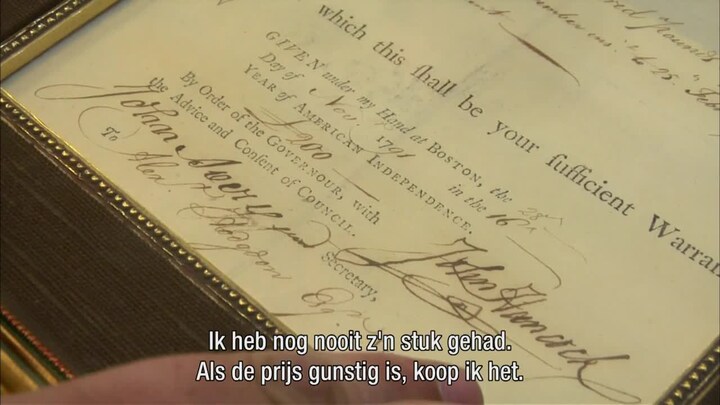 which this ſhall be your ſufficient Warran
GIVEN under my Hand at BOSTON, the 28th
Day of Nov. 1791 in the 16th
YEAR of AMERICAN INDEPENDENCE.
£200
By Order of the GOVERNOUR, with
the Advice and Conſent of COUNCIL.
John Avery Jun Secretary,
John Hancock
To
Alex. Hodgdon Esqr.
Ik heb nog nooit z'n stuk gehad.
Als de prijs gunstig is, koop ik het.